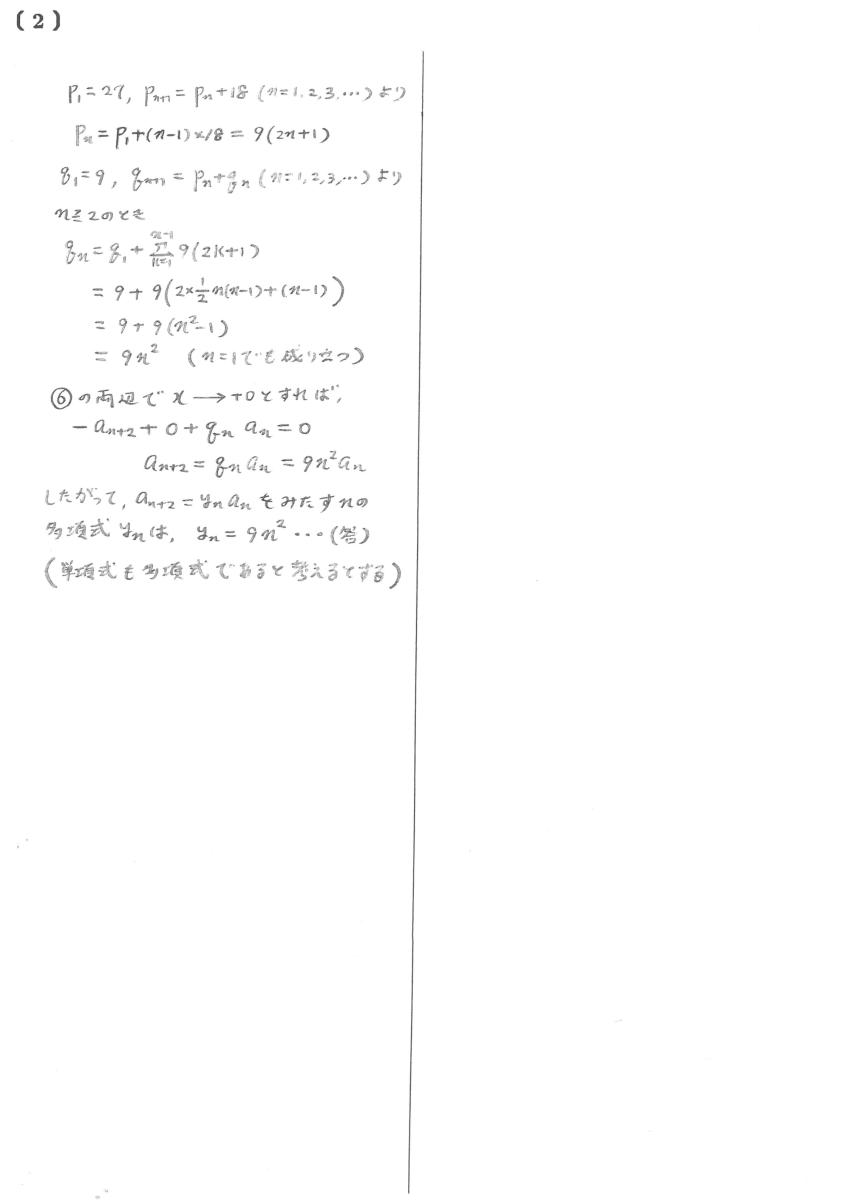 (2)
P₁=27, Pₙ₊₁=Pₙ+18 (n=1,2,3,…)より
Pₙ=P₁+(n-1)×18=9(2n+1)
q₁=9, qₙ₊₁=Pₙ+qₙ (n=1,2,3,…)より
n≧2のとき
qₙ=q₁+∑_{k=1}^{n-1}9(2k+1)
=9+9(2×1/2 n(n-1)+(n-1))
=9+9(n²-1)
=9n² (n=1でも成り立つ)
⑥の両辺でx→+0とすれば,
-aₙ₊₂+0+qₙaₙ=0
aₙ₊₂=qₙaₙ=9n²aₙ
したがって, aₙ₊₂=yₙaₙをみたすnの
多項式yₙは, yₙ=9n²…(答)
(単項式も多項式であると考えるとする)